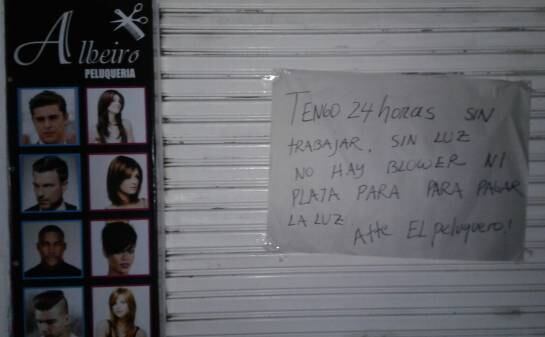 Albeiro
PELUQUERIA
TENGO 24 horas SIN
TRABAJAR, SIN LUZ
NO HAY BLOWER NI
PLATA PARA PARA PAGAR
LA LUZ
Atte EL peluquero!